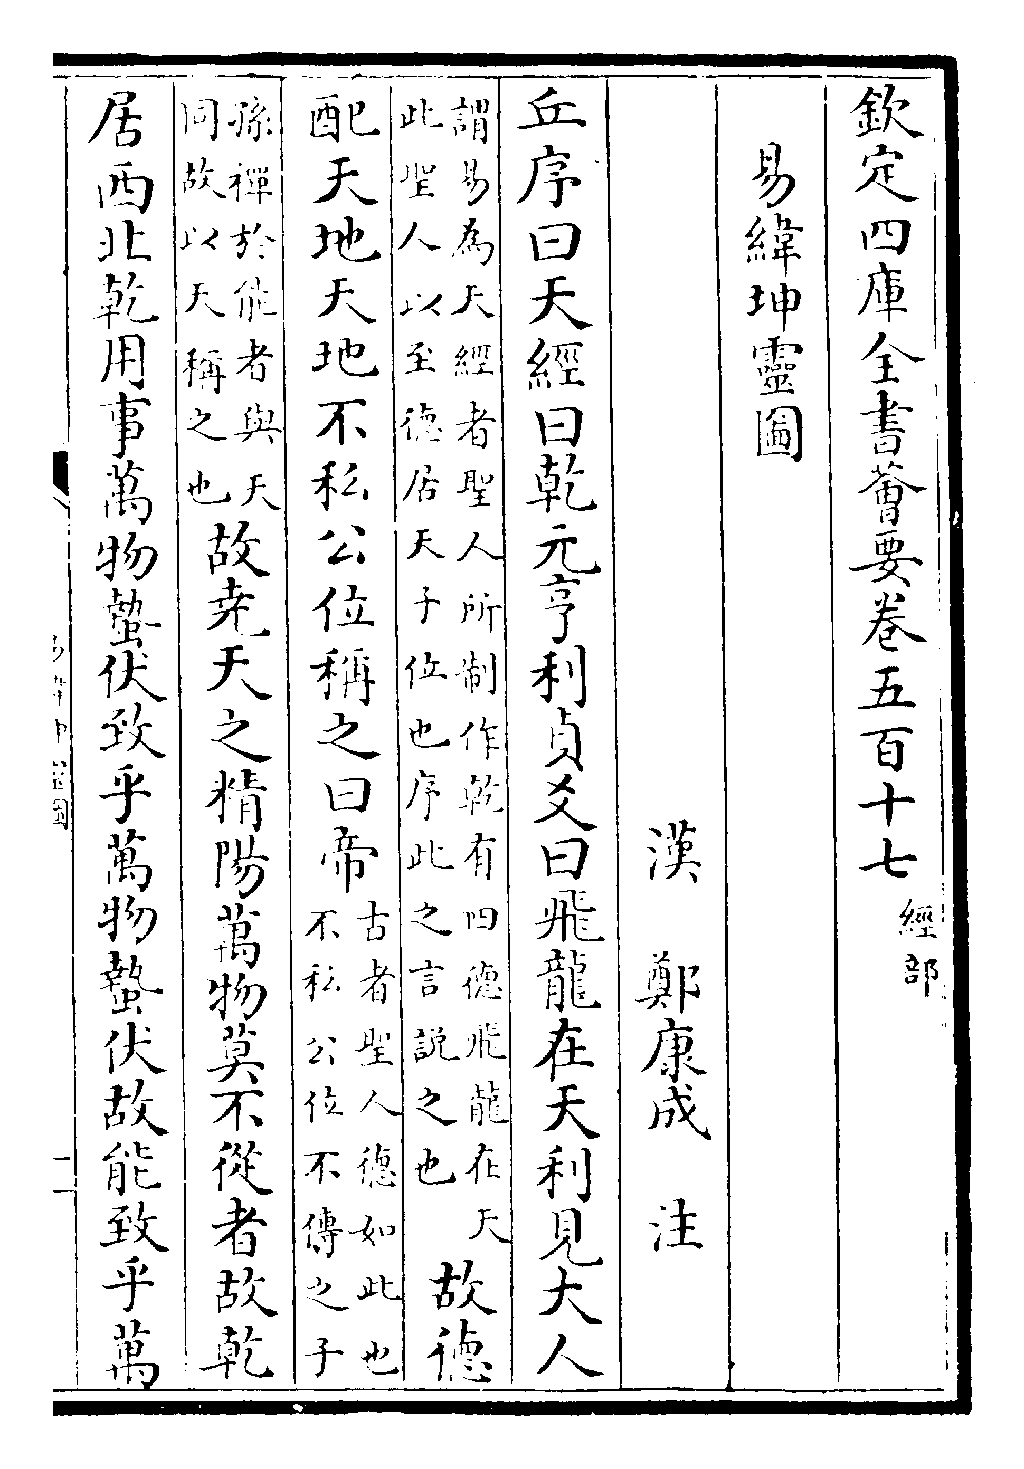 欽定四庫全書薈要卷五百十七
經部
易緯坤靈圖
漢 鄭康成 注
丘序曰天經曰乾元亨利貞爻曰飛龍在天利見大人
謂易為天經者聖人所制作乾有四德飛龍在天
此聖人以至德居天子位也序此之言説之也
故德
配天地天地不私公位稱之曰帝
古者聖人德如此也
不私公位不傳之子
孫禪於能者與天
同故以天稱之也
故尭天之精陽萬物莫不從者故乾
居西北乾用事萬物蟄伏致乎萬物蟄伏故能致乎萬
易緯坤靈圖
一